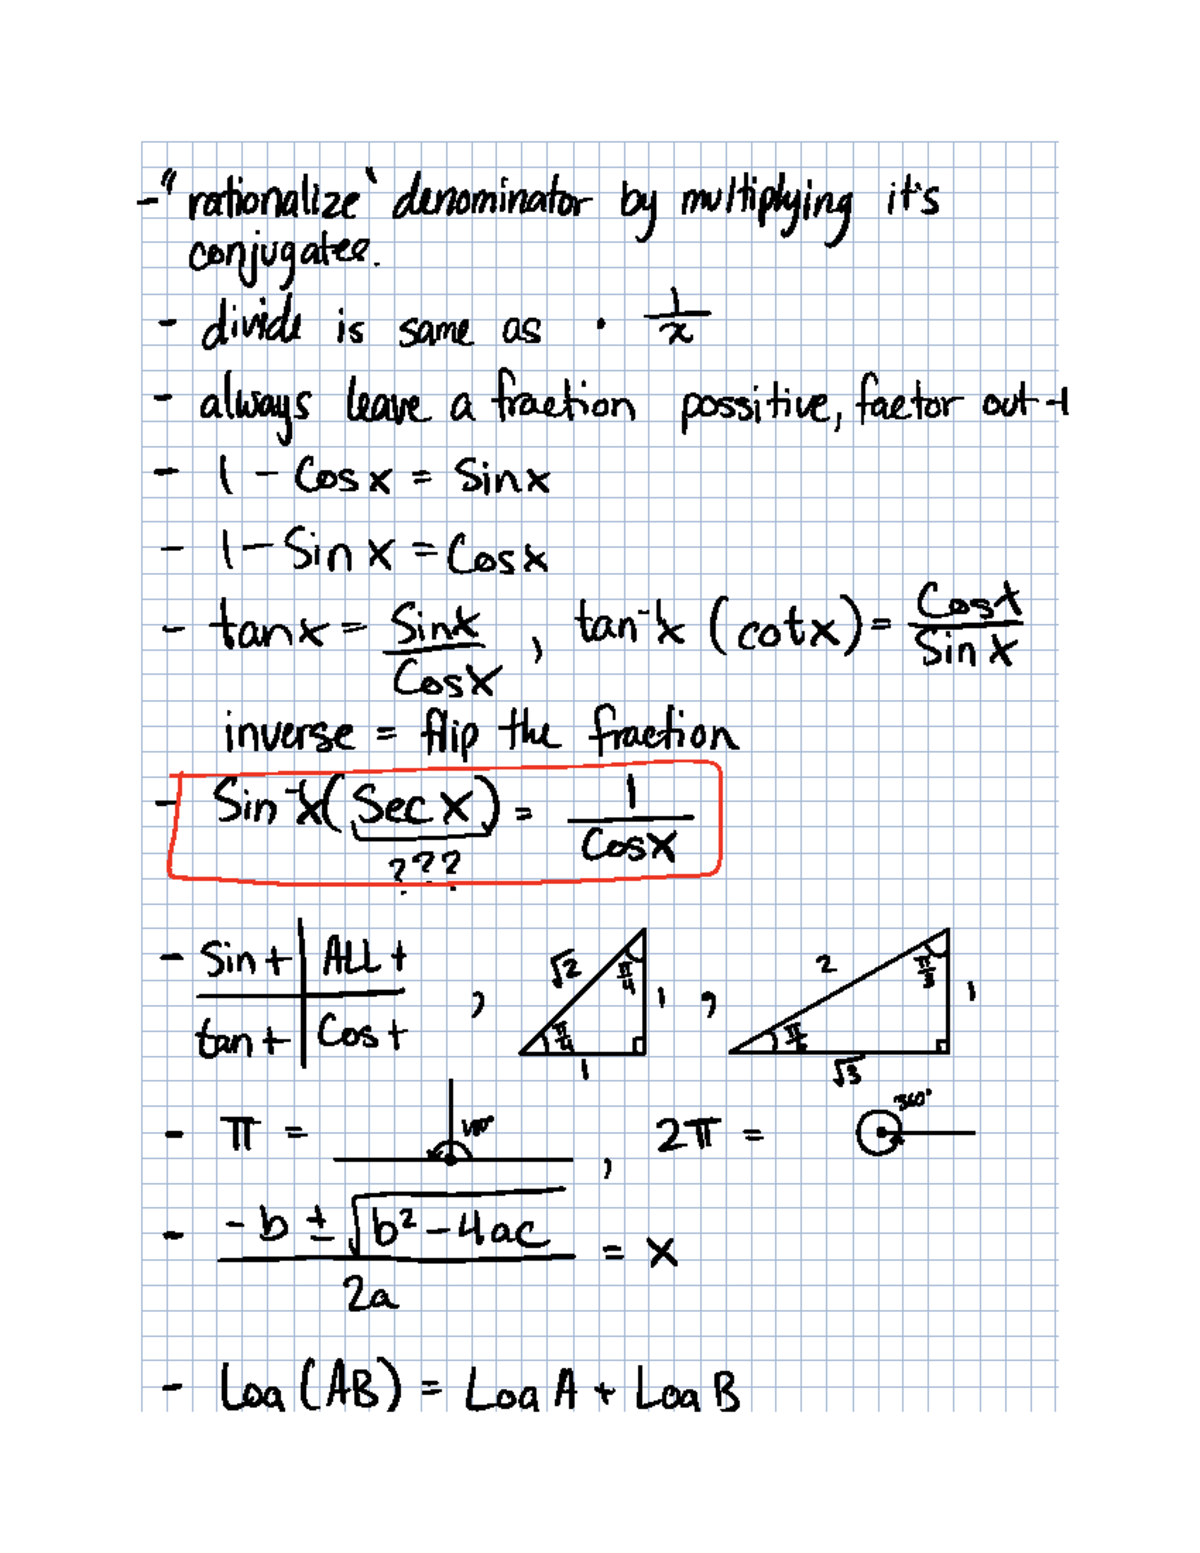 -"rationalize" denominator by multiplying it's
conjugatee.
- divide is same as · 1/x
- always leave a fraction possitive, factor out -1
- 1 - Cos x = Sin x
- 1 - Sin x = Cos x
- tan x = Sin x / Cos X , tan⁻¹x (cot x) = Cos x / Sin x
inverse = flip the fraction
- Sin⁻¹x (Sec X) = 1 / Cos X
???
- Sin + | ALL + , √2 π/4 π/4 1 1 , 2 π/3 π/6 1 √3
tan + | Cos +
- π = 180° , 2π = 360°
- -b ± √b² - 4ac / 2a = X
- Log (AB) = Log A + Log B